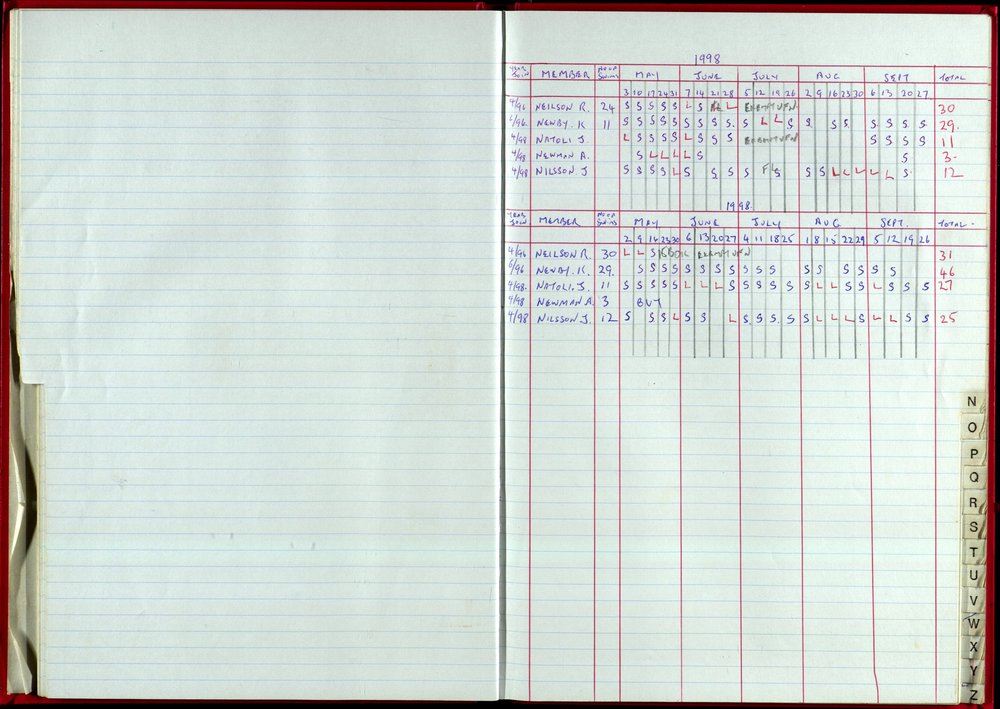 1998
YEAR JOIN MEMBER NO OF SWIMS MAY JUNE JULY AUG SEPT TOTAL
3 10 17 24 31 7 14 21 28 5 12 19 26 2 9 16 23 30 6 13 20 27
4/96 NEILSON R. 24 S S S S S L S L 30
6/96 NEWBY. K 11 S S S S S S S S S S L L S S S S S S S S 29.
4/98 NATOLI J. L S S S S L S S S S S S S 11
4/98 NEWMAN A. S L L L L S S 3
4/98 NILSSON J S S S S L S S S S F S S L L L L L S 12
1998.
YEAR JOIN MEMBER NO OF SWIMS MAY JUNE JULY AUG SEPT. TOTAL
2 9 16 23 30 6 13 20 27 4 11 18 25 1 8 15 22 29 5 12 19 26
4/96 NEILSON R. 30 L L S 31
6/96 NEWBY. K 29. S S S S S S S S S S S S S S S S S 46
4/98. NATOLI. J. 11 S S S S S L L L S S S S S S L L S S L S S S 27
4/98 NEWMAN A. 3
4/98 NILSSON J. 12 S S S L S S L S S S S S L L L S L L S S 25
N
O
P
Q
R
S
T
U
V
W
X
Y
Z